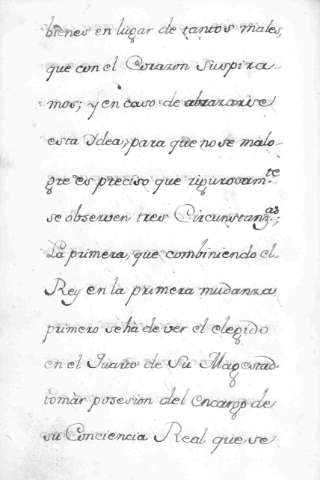 bienes en lugar de tantos males,
que con el Corazon suspira
mos; y en caso de abrazarse
esta Ydea, para que no se malo-
gre es preciso que rigurosam.te
se observen tres Circunstanz.as;
La primera, que combiniendo el
Rey en la primera mudanza
primero se hà de ver el elegido
en el Quarto de Su Magestad
tomàr posesion del encargo de
su Conciencia Real que se